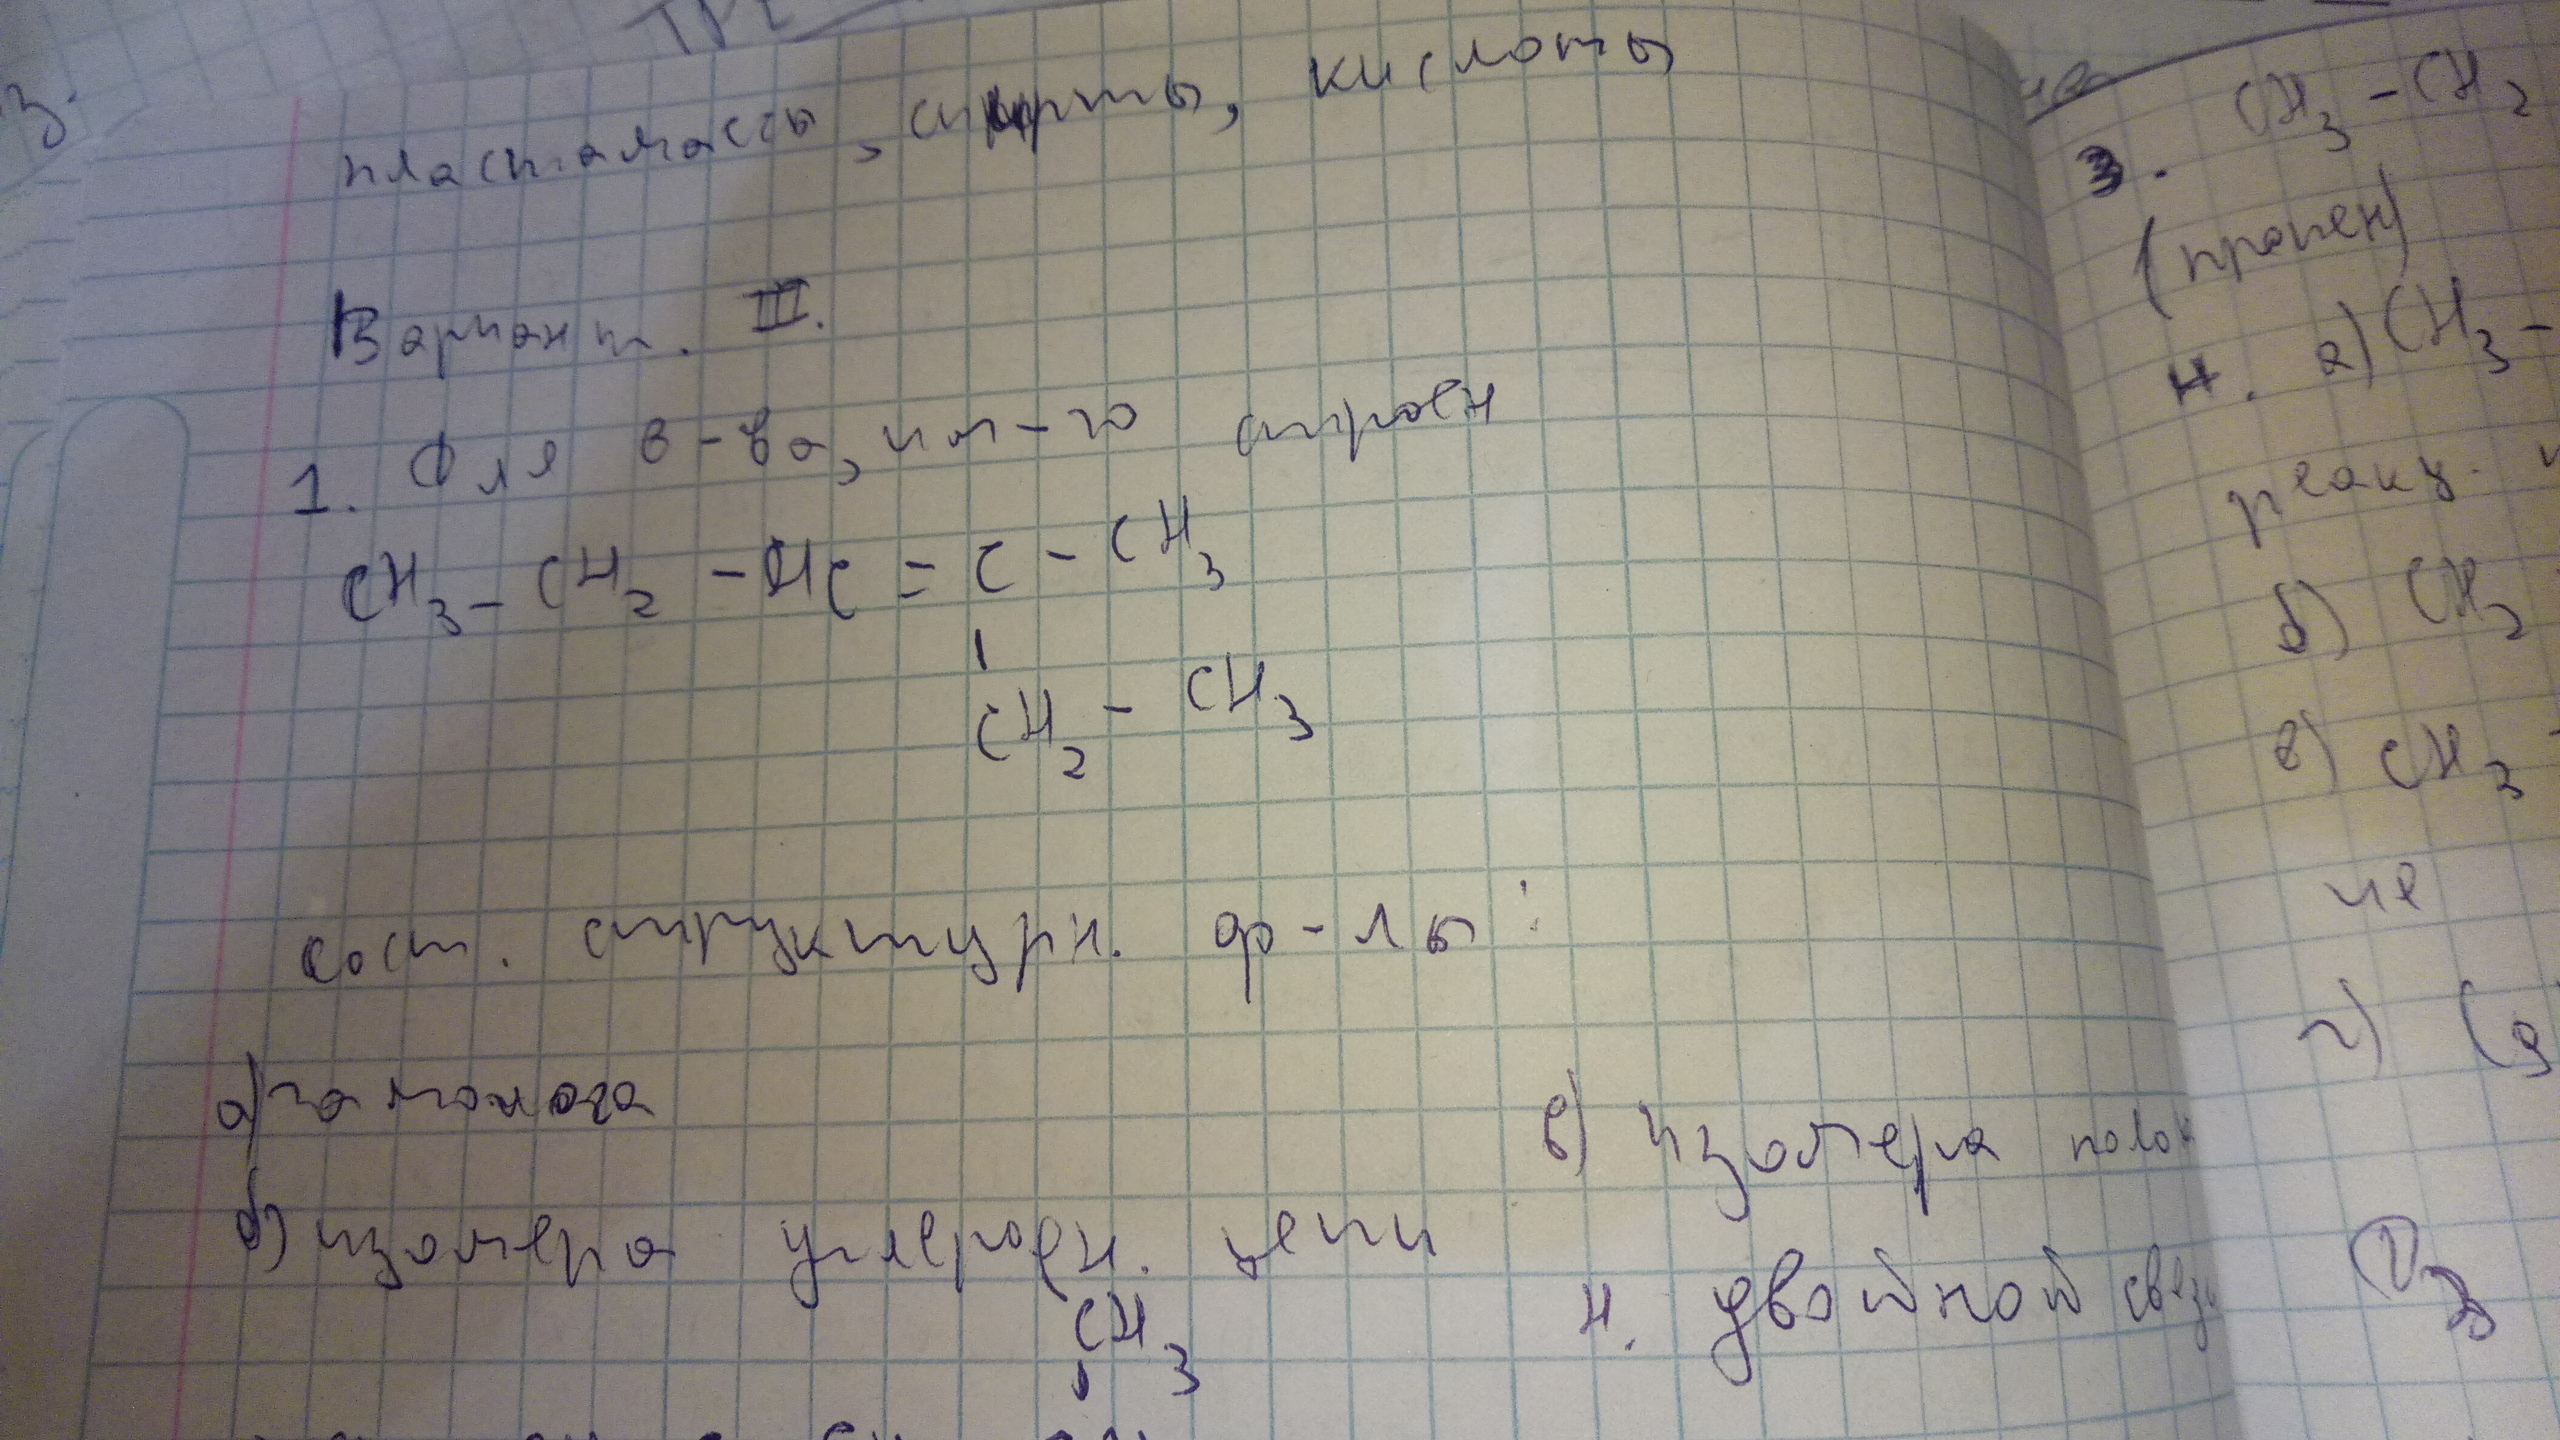 пластмассы, спирты, кислоты
Вариант. III.
1. Для в-ва, им-го строен
CH3 - CH2 - HC = C - CH3
CH2 - CH3
сост. структурн. ф-лы:
а) гомолога
б) изомера углеродн. цепи
CH3
в) изомера полож
н. двойной связи
3. CH3 - CH2
(пропен)
4. а) CH3 -
реакц.
б) CH2
в) CH3 -
не
г)